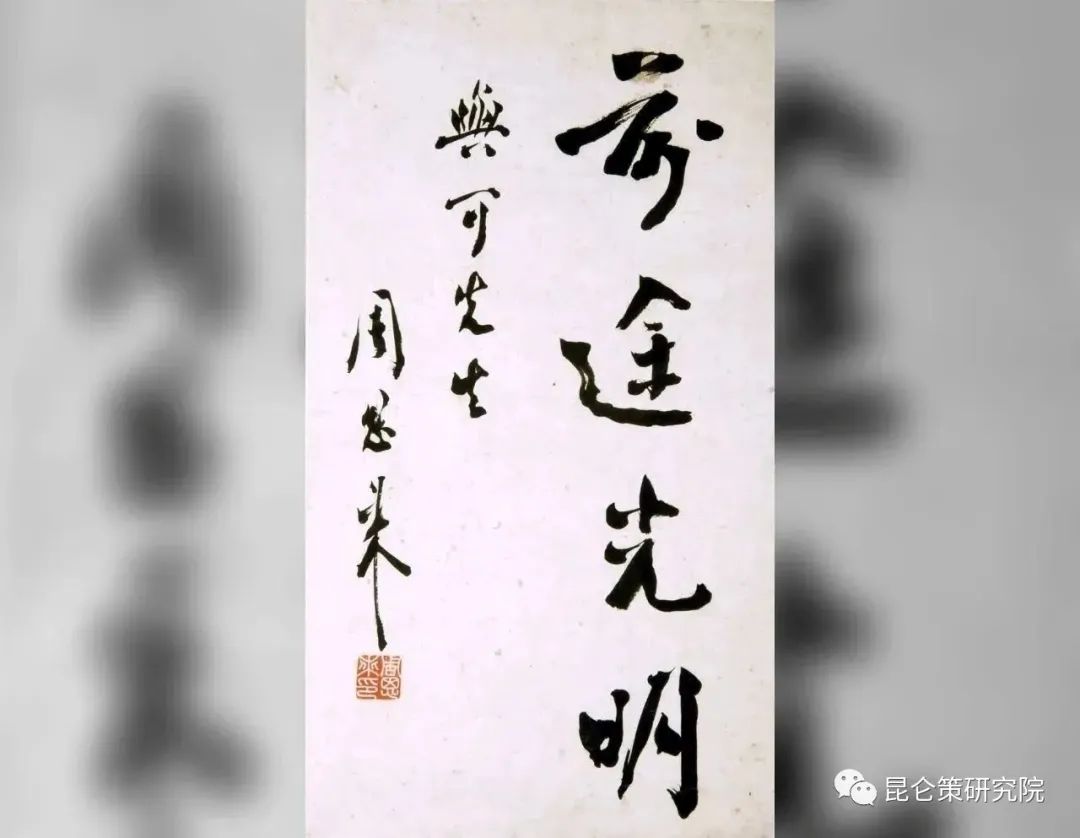 前途光明
與可先生
周恩来
周恩來印
昆仑策研究院